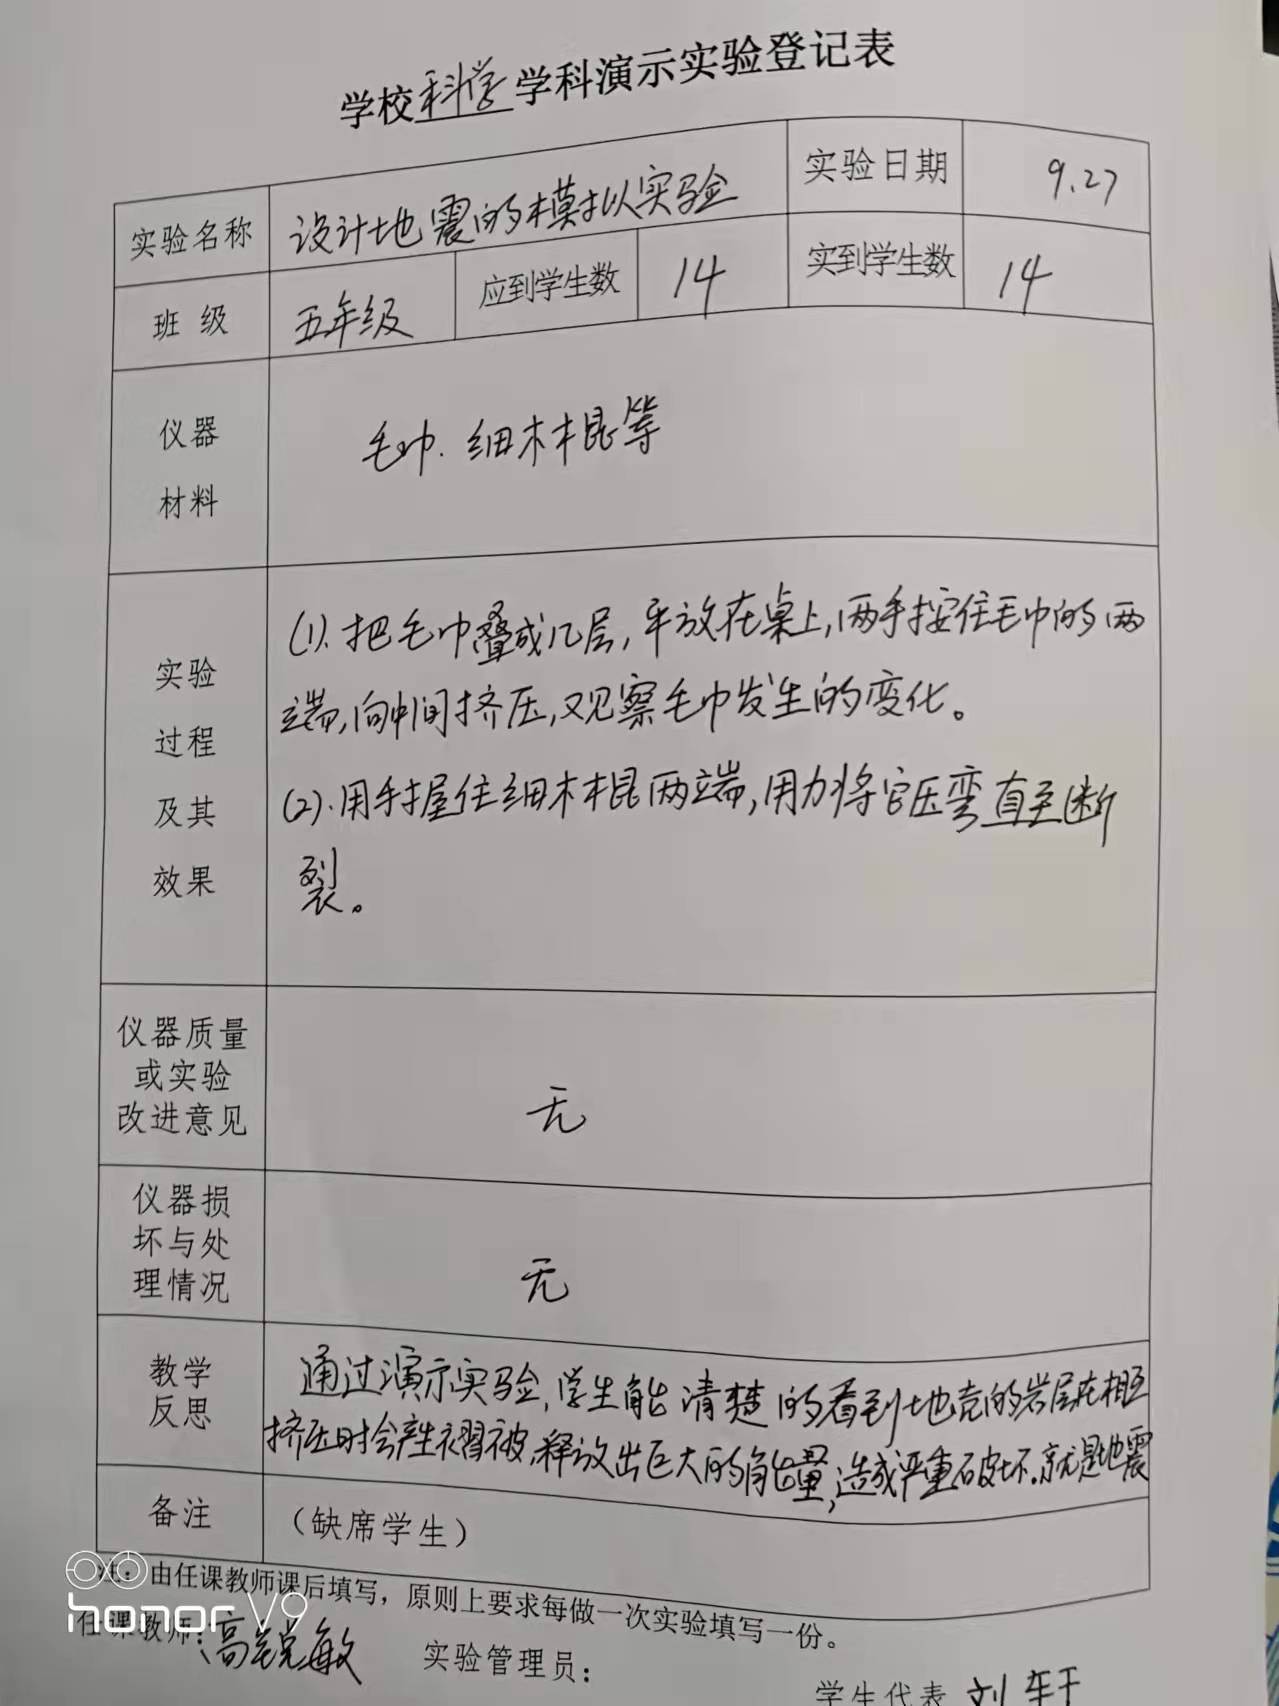 学校科学学科演示实验登记表
实验名称 设计地震的模拟实验 实验日期 9.27
班 级 五年级 应到学生数 14 实到学生数 14
仪器
材料
毛巾.细木棍等
实验
过程
及其
效果
(1).把毛巾叠成几层,平放在桌上,两手按住毛巾的两
端,向中间挤压,观察毛巾发生的变化。
(2).用手握住细木棍两端,用力将它压弯直至断
裂。
仪器质量
或实验
改进意见
无
仪器损
坏与处
理情况
无
教学
反思
通过演示实验,学生能清楚的看到地壳的岩层在相互
挤压时会产生褶皱,释放出巨大的能量,造成严重破坏.就是地震
备注 （缺席学生）
注：由任课教师课后填写，原则上要求每做一次实验填写一份。
honor V9
任课教师：高锐敏 实验管理员： 学生代表 刘轩